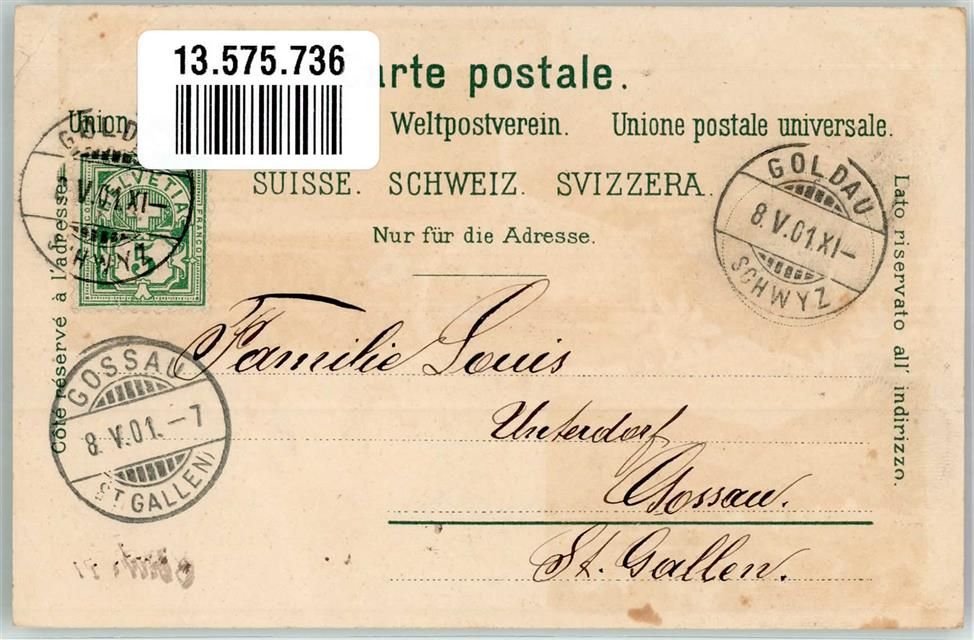 13.575.736
arte postale.
Union Weltpostverein. Unione postale universale.
SUISSE. SCHWEIZ. SVIZZERA.
Nur für die Adresse.
Côté réservé à l'adresse
Lato riservato all' indirizzo.
HELVETIA
FRANCO
5
GOLDAU
8.V.01.XI—
SCHWYZ
GOLDAU
8.V.01.XI—
SCHWYZ
GOSSAU
8.V.01.—7
(ST. GALLEN)
Familie Louis
Unterdorf
Gossau.
St. Gallen.